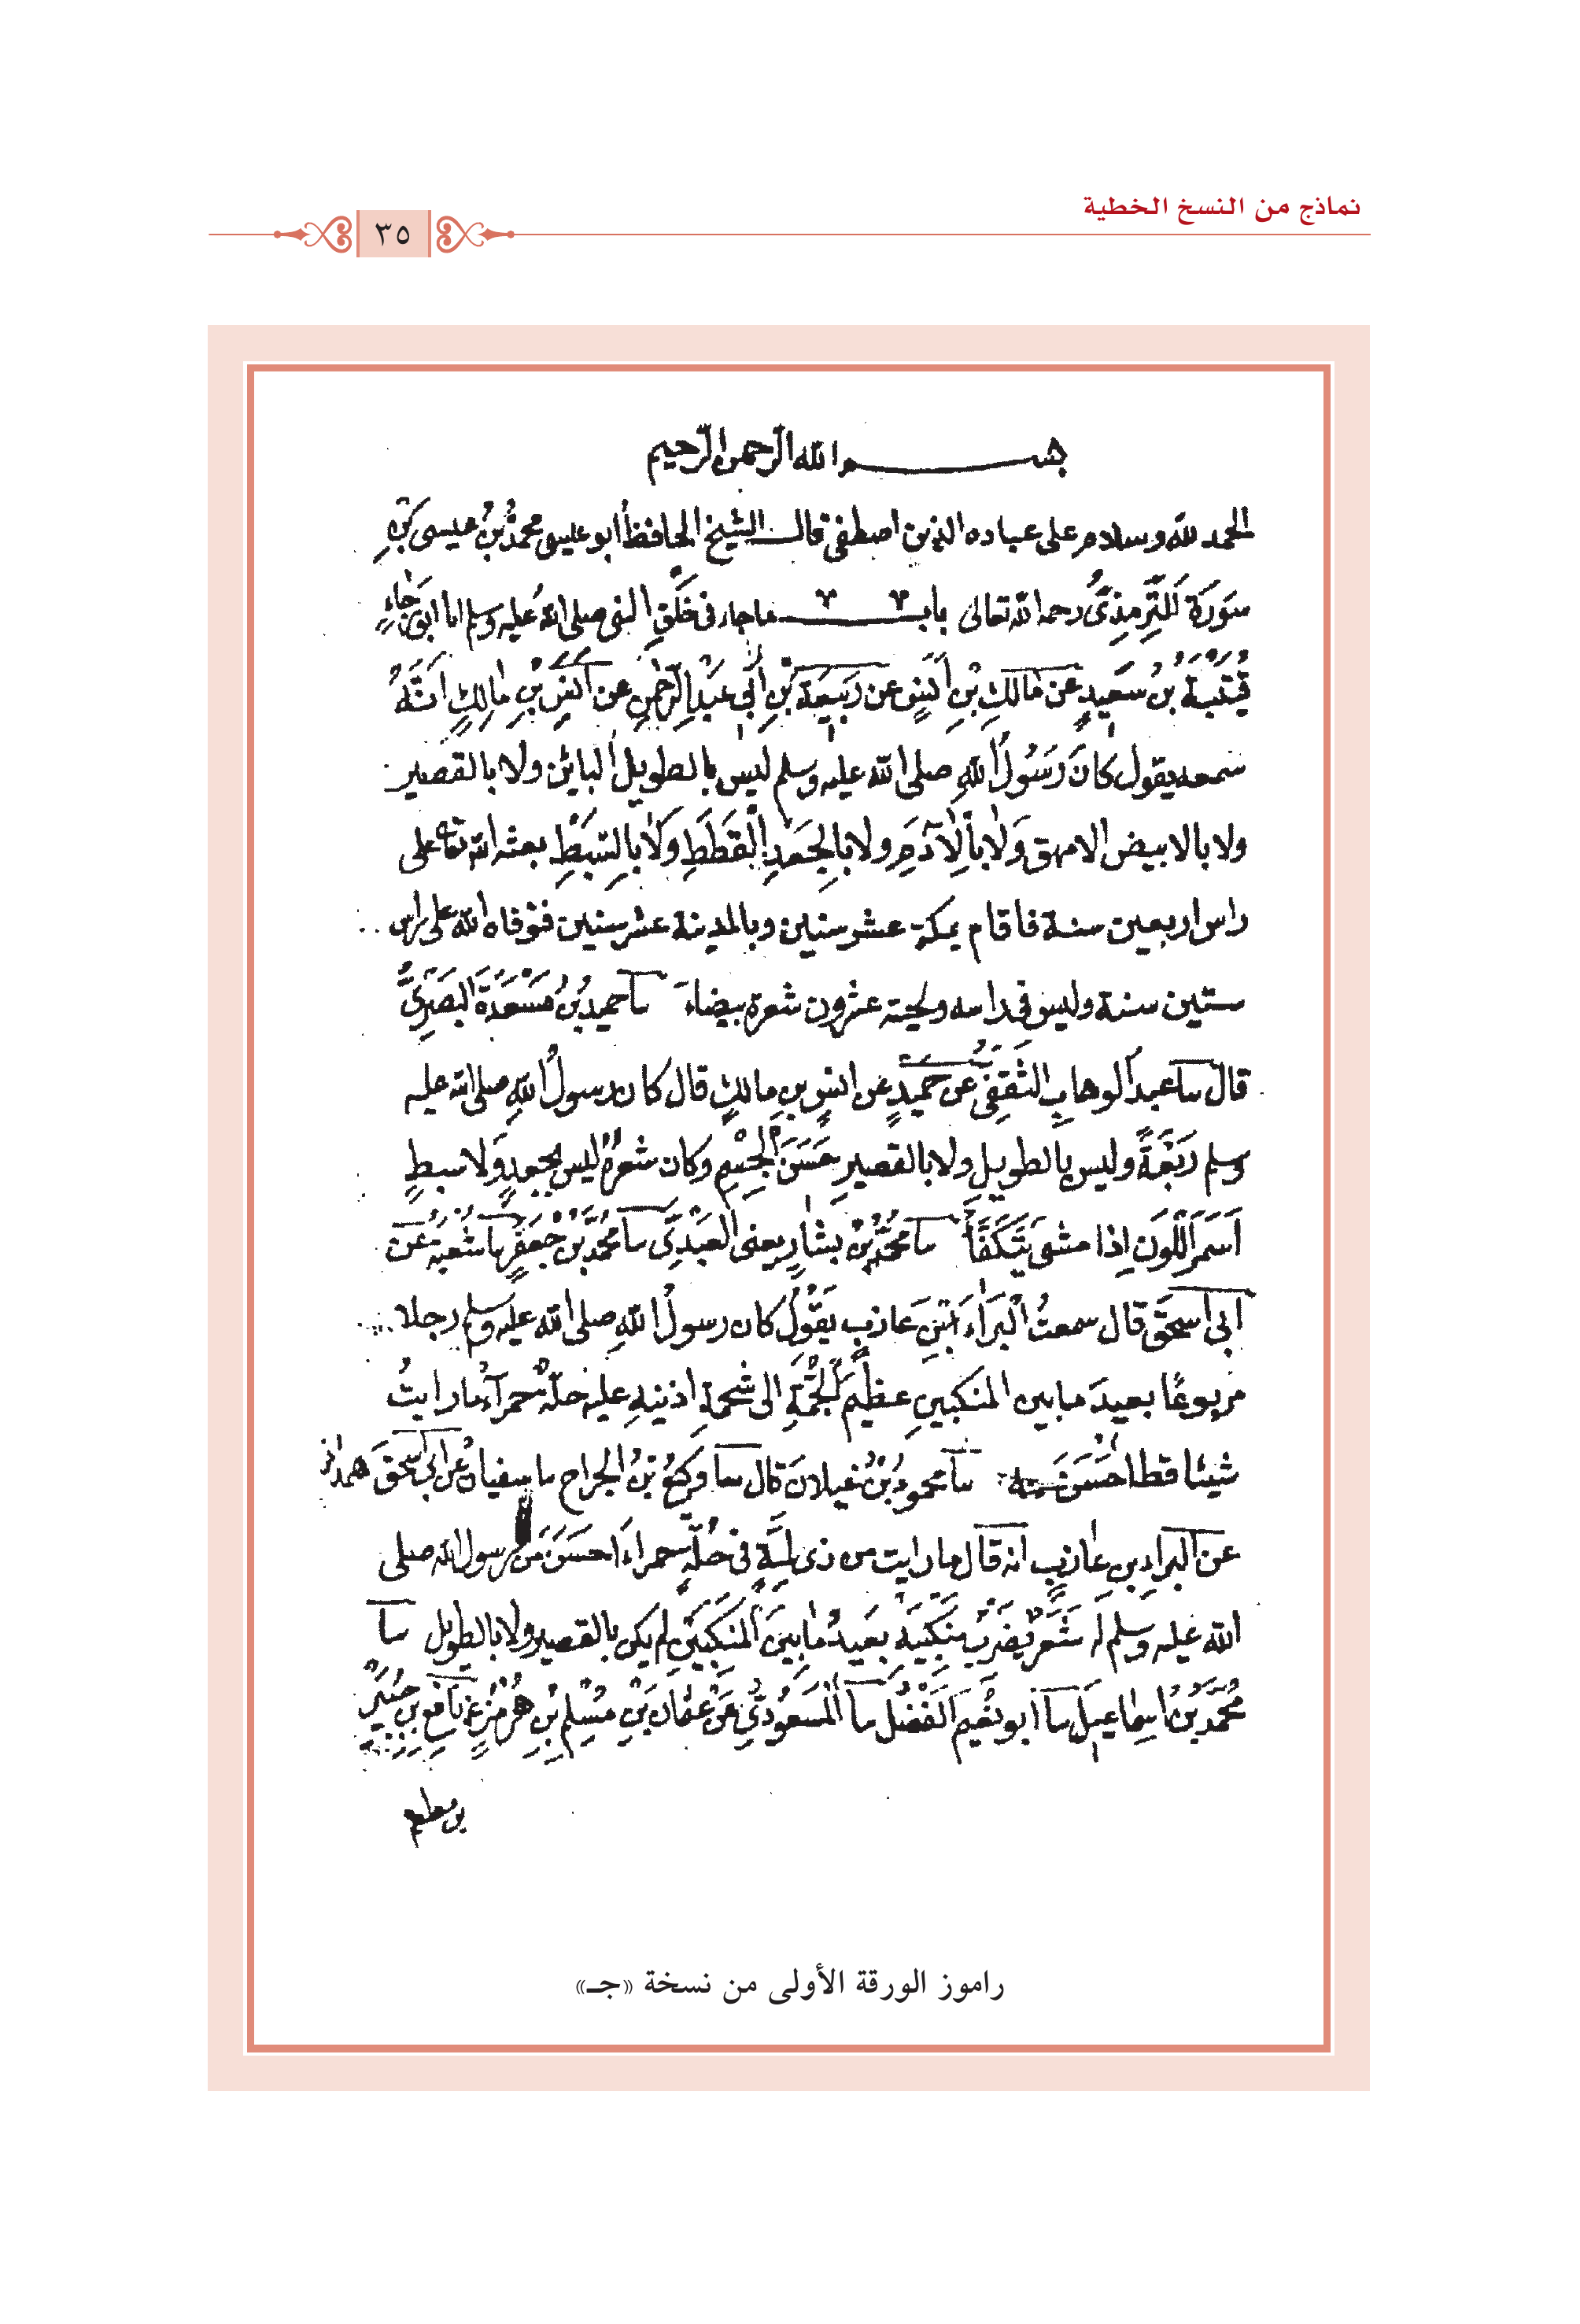 نماذج من النسخ الخطية
٣٥
بسم الله الرحمن الرحيم
الحمد لله وسلام على عباده الذين اصطفى قال الشيخ الحافظ أبو عيسى محمد بن عيسى بن
سَوْرَة التِّرمِذيُّ رحمه الله تعالى باب ما جاء في خَلْقِ النبي صلى الله عليه وسلم انا ابو رجاءٍ
قُتَيْبَة بنُ سعيدٍ عن مالكِ بنِ انسٍ عن ربيعةَ بْنِ أبي عبْدِ الرحمنِ عن انسِ بْنِ مالكٍ انَّهُ
سمعه يقول كانَ رَسُولُ اللهِ صلى الله عليه وسلم ليس بالطويل البائن ولا بالقصير
ولا بالابيض الامهق وَلا بالآدَمِ ولا بالجَعدِ القَطَطِ وَلَا بالسَّبْطِ بعثه الله تعالى على
راس اربعين سنة فاقام بمكة عشر سنين وبالمدينة عشر سنين فتوفاه الله على راس
ستين سنة وليس في راسه ولحيته عشرون شعرة بيضاءَ ثنا حميدُ بنُ مَسْعَدَةَ البَصْرِيُّ
قال ثنا عبد الوهابِ الثَّقَفِيُّ عن حُمَيدٍ عن انسِ بنِ مالكٍ قال كان رسولُ اللهِ صلى الله عليه
وسلم رَبْعَةً وليس بالطويلِ ولا بالقصيرِ حَسَنَ الجِسْمِ وكان شعرُهُ ليس بجعدٍ وَلا سبطٍ
اَسمَرَ اللَّونِ اِذا مشى يَتَكَفَّأُ ثنا محمَّدُ بْنُ بشارٍ يعنى العَبْدِيَّ ثنا مُحمَّدُ بْنُ جَعْفَرٍ ثنا شُعبةُ عَنْ
ابى اسحقَ قال سمعتُ الْبَرَاءَ بْنَ عَازبٍ يَقُولُ كان رسولُ اللهِ صلى الله عليه وسلم رجلا
مربوعًا بعيدَ ما بين المنكبينِ عظيمَ الجُمَّةِ الى شحمةِ اذنيهِ عليه حلةٌ حمرآءُ ما رايتُ
شيئا قط احْسَنَ منه ثنا محمودُ بْنُ غيلانَ قال ثنا وكيعُ بْنُ الجراح ثنا سفيانُ عن ابى اسحقَ همدانى
عن البراءِ بنِ عازبٍ انه قال ما رايت من ذى لِمَّةٍ في حُلَّةٍ حمراءَ احسَنَ مَن رسول الله صلى
الله عليه وسلم له شَعْرٌ يَضْرِبُ منْكِبَيهِ بَعيدُ ما بَيْنَ المَنْكِبَيْنِ لم يكن بالقصير ولا بالطويل ثنا
مُحَمَّدُ بْنُ اسماعيلَ ثنا ابو نُعَيمٍ الفَضْلُ ثنا المَسْعُودِيُّ عَنْ عثمانَ بْنِ مُسْلِمِ بْنِ هُرْمُزٍ عَنْ نَافعِ بْنِ جُبَيْرِ
بن مطعم
راموز الورقة الأولى من نسخة «جـ»